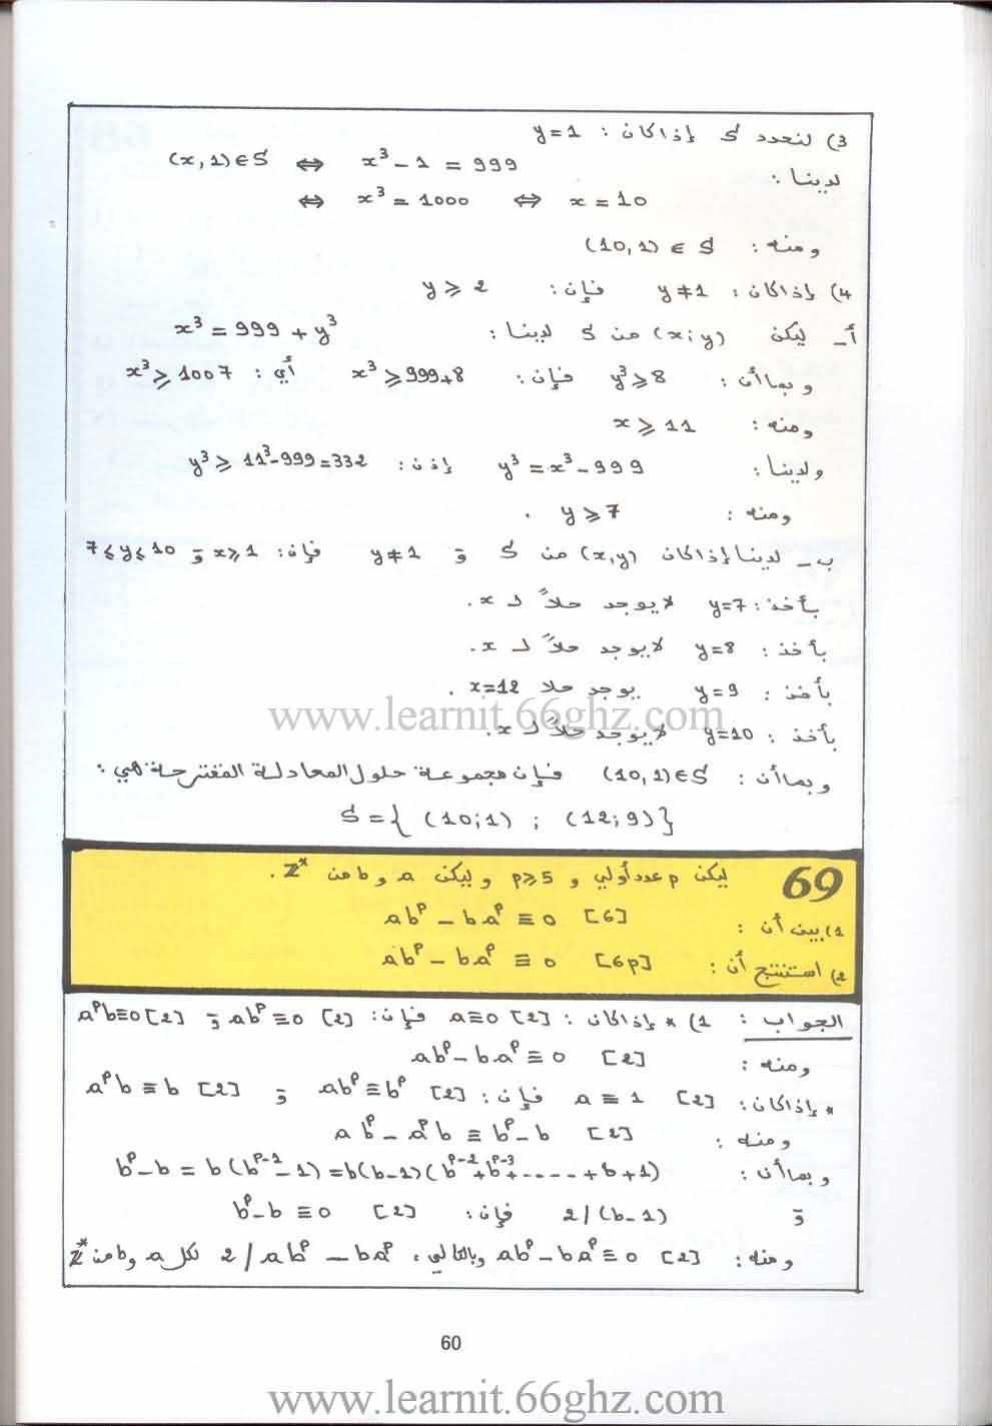 3) لنحدد S إذا كان : y=1
لدينا : (x,1)∈S ⇔ x³-1 = 999
⇔ x³ = 1000 ⇔ x = 10
ومنه : (10,1) ∈ S
4) إذا كان : y≠1 فإن : y ⩾ 2
أ_ ليكن (x;y) من S لدينا : x³ = 999 + y³
وبما أن : y³⩾8 فإن : x³⩾999+8 أي : x³⩾1007
ومنه : x⩾11
ولدينا : y³ = x³-999 إذن : y³⩾ 11³-999=332
ومنه : y⩾7 .
ب_ لدينا إذا كان (x,y) من S و y≠1 فإن : x⩾1 و 7⩽y⩽10
بأخذ : y=7 لا يوجد حلاً لـ x.
بأخذ : y=8 لا يوجد حلاً لـ x.
بأخذ : y=9 يوجد حلا x=12 .
بأخذ : y=10 لا يوجد حلاً لـ x.
وبما أن : (10,1)∈S فإن مجموعة حلول المعادلة المقترحة هي :
S={ (10;1) ; (12;9)}
69 ليكن p عدد أولي و p⩾5 وليكن a و b من Z* .
1) بين أن : abᵖ - baᵖ ≡ 0 [6]
2) استنتج أن : abᵖ - baᵖ ≡ 0 [6p]
الجواب : 1) * إذا كان : a≡0 [2] فإن : abᵖ≡0 [2] و aᵖb≡0[2]
ومنه : abᵖ-baᵖ≡0 [2]
* إذا كان : a≡1 [2] فإن : abᵖ≡bᵖ [2] و aᵖb≡b [2]
ومنه : abᵖ-aᵖb≡bᵖ-b [2]
وبما أن : bᵖ-b = b(bᵖ⁻¹-1)=b(b-1)(bᵖ⁻²+bᵖ⁻³+.....+b+1)
و 2/(b-1) فإن : bᵖ-b≡0 [2]
ومنه : abᵖ-baᵖ≡0 [2] وبالتالي : 2/abᵖ-baᵖ لكل a و b من Z*
60
www.learnit.66ghz.com
www.learnit.66ghz.com